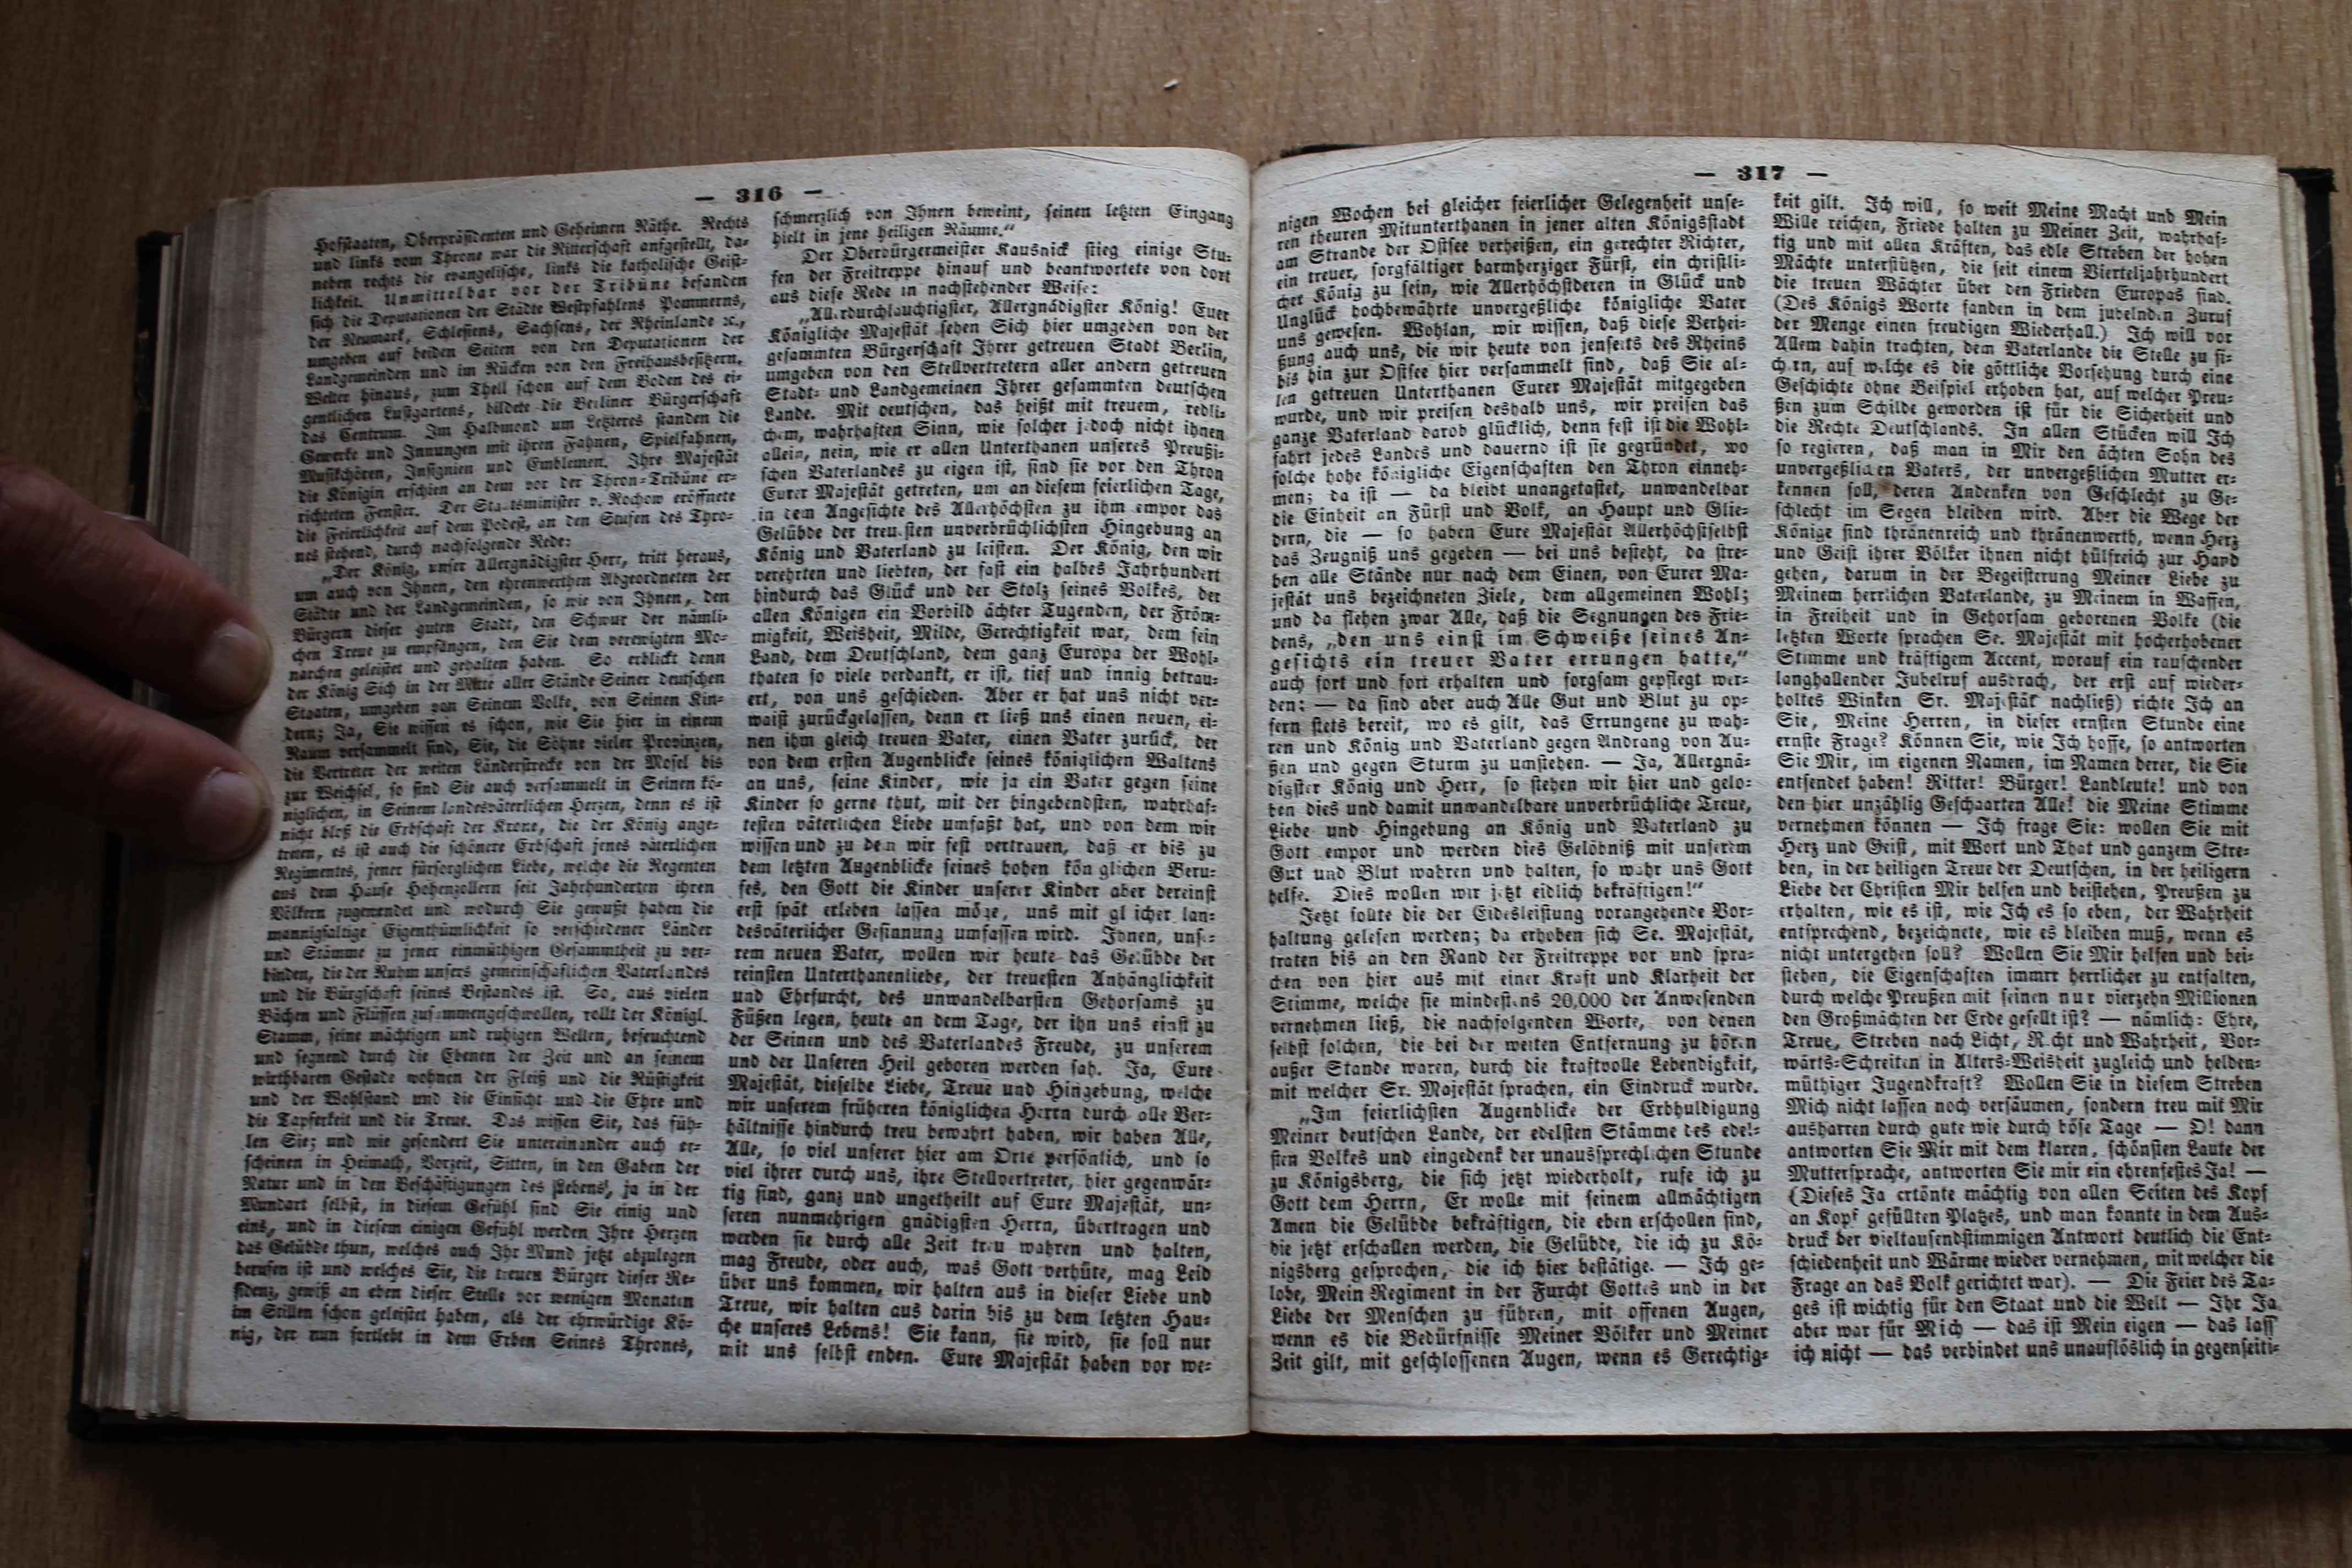 — 316 —
Hofstaaten, Oberpräsidenten und Geheimen Räthe. Rechts
und links vom Throne war die Ritterschaft aufgestellt, da-
neben rechts die evangelische, links die katholische Geist-
lichkeit. Unmittelbar vor der Tribüne befanden
sich die Deputationen der Städte Westpfahlens Pommerns,
der Neumark, Schlesiens, Sachsens, der Rheinlande ꝛc.,
umgeben auf beiden Seiten von den Deputationen der
Landgemeinden und im Rücken von den Freihausbesitzern.
Weiter hinaus, zum Theil schon auf dem Boden des ei-
gentlichen Lustgartens, bildete die Berliner Bürgerschaft
das Centrum. Im Halbmond um Letzteres standen die
Gewerke und Innungen mit ihren Fahnen, Spielfahnen,
Musikchören, Insignien und Emblemen. Ihre Majestät
die Königin erschien an dem vor der Thron-Tribüne er-
richteten Fenster. Der Staatsminister v. Rochow eröffnete
die Feierlichkeit auf dem Podest, an den Stufen des Thro-
nes stehend, durch nachfolgende Rede:
„Der König, unser Allergnädigster Herr, tritt heraus,
um auch von Ihnen, den ehrenwerthen Abgeordneten der
Städte und der Landgemeinden, so wie von Ihnen, den
Bürgern dieser guten Stadt, den Schwur der nämli-
chen Treue zu empfangen, den Sie dem verewigten Mo-
narchen geleistet und gehalten haben. So erblickt denn
der König Sich in der Mitte aller Stände Seiner deutschen
Staaten, umgeben von Seinem Volke, von Seinen Kin-
dern; Ja, Sie wissen es schon, wie Sie hier in einem
Raum versammelt sind, Sie, die Söhne vieler Provinzen,
die Vertreter der weiten Länderstrecke von der Mosel bis
zur Weichsel, so sind Sie auch versammelt in Seinen kö-
niglichen, in Seinem landesväterlichen Herzen, denn es ist
nicht bloß die Erbschaft der Krone, die der König ange-
treten, es ist auch die schönere Erbschaft jenes väterlichen
Regimentes, jener fürsorglichen Liebe, welche die Regenten
aus dem Hause Hohenzollern seit Jahrhunderten ihren
Völkern zugewendet und wodurch Sie gewußt haben die
mannigfaltige Eigenthümlichkeit so verschiedener Länder
und Stämme zu jener einmüthigen Gesammtheit zu ver-
binden, die der Ruhm unsers gemeinschaflichen Vaterlandes
und die Bürgschaft seines Bestandes ist. So, aus vielen
Bächen und Flüssen zusammengeschwollen, rollt der Königl.
Stamm, seine mächtigen und ruhigen Wellen, befeuchtend
und segnend durch die Ebenen der Zeit und an seinem
wirthbaren Gestade wohnen der Fleiß und die Rüstigkeit
und der Wohlstand und die Einsicht und die Ehre und
die Tapferkeit und die Treue. Das wissen Sie, das füh-
len Sie; und wie gesondert Sie untereinander auch er-
scheinen in Heimath, Vorzeit, Sitten, in den Gaben der
Natur und in den Beschäftigungen des Lebens, ja in der
Mundart selbst, in diesem Gefühl sind Sie einig und
eins, und in diesem einigen Gefühl werden Ihre Herzen
das Gelübde thun, welches auch Ihr Mund jetzt abzulegen
berufen ist und welches Sie, die treuen Bürger dieser Re-
sidenz, gewiß an eben dieser Stelle vor wenigen Monaten
im Stillen schon geleistet haben, als der ehrwürdige Kö-
nig, der nun fortlebt in dem Erben Seines Thrones,
schmerzlich von Ihnen beweint, seinen letzten Eingang
hielt in jene heiligen Räume.“
Der Oberbürgermeister Kausnick stieg einige Stu-
fen der Freitreppe hinauf und beantwortete von dort
aus diese Rede in nachstehender Weise:
„Allerdurchlauchtigster, Allergnädigster König! Euer
Königliche Majestät sehen Sich hier umgeben von der
gesammten Bürgerschaft Ihrer getreuen Stadt Berlin,
umgeben von den Stellvertretern aller andern getreuen
Stadt- und Landgemeinen Ihrer gesammten deutschen
Lande. Mit deutschen, das heißt mit treuem, redli-
chem, wahrhaften Sinn, wie solcher jedoch nicht ihnen
allein, nein, wie er allen Unterthanen unseres Preußi-
schen Vaterlandes zu eigen ist, sind sie vor den Thron
Eurer Majestät getreten, um an diesem feierlichen Tage,
in dem Angesichte des Allerhöchsten zu ihm empor das
Gelübde der treuesten unverbrüchlichsten Hingebung an
König und Vaterland zu leisten. Der König, den wir
verehrten und liebten, der fast ein halbes Jahrhundert
hindurch das Glück und der Stolz seines Volkes, der
allen Königen ein Vorbild ächter Tugenden, der Fröm-
migkeit, Weisheit, Milde, Gerechtigkeit war, dem sein
Land, dem Deutschland, dem ganz Europa der Wohl-
thaten so viele verdankt, er ist, tief und innig betrau-
ert, von uns geschieden. Aber er hat uns nicht ver-
waist zurückgelassen, denn er ließ uns einen neuen, ei-
nen ihm gleich treuen Vater, einen Vater zurück, der
von dem ersten Augenblicke seines königlichen Waltens
an uns, seine Kinder, wie ja ein Vater gegen seine
Kinder so gerne thut, mit der hingebendsten, wahrhaf-
testen väterlichen Liebe umfaßt hat, und von dem wir
wissen und zu dem wir fest vertrauen, daß er bis zu
dem letzten Augenblicke seines hohen königlichen Beru-
fes, den Gott die Kinder unserer Kinder aber dereinst
erst spät erleben lassen möge, uns mit gleicher lan-
desväterlicher Gesinnung umfassen wird. Ihnen, unse-
rem neuen Vater, wollen wir heute das Gelübde der
reinsten Unterthanenliebe, der treuesten Anhänglichkeit
und Ehrfurcht, des unwandelbarsten Gehorsams zu
Füßen legen, heute an dem Tage, der ihn uns einst zu
der Seinen und des Vaterlandes Freude, zu unserem
und der Unseren Heil geboren werden sah. Ja, Eure
Majestät, dieselbe Liebe, Treue und Hingebung, welche
wir unserem früheren königlichen Herrn durch alle Ver-
hältnisse hindurch treu bewahrt haben, wir haben Alle,
Alle, so viel unserer hier am Orte persönlich, und so
viel ihrer durch uns, ihre Stellvertreter, hier gegenwär-
tig sind, ganz und ungetheilt auf Eure Majestät, un-
seren nunmehrigen gnädigsten Herrn, übertragen und
werden sie durch alle Zeit treu wahren und halten,
mag Freude, oder auch, was Gott verhüte, mag Leid
über uns kommen, wir halten aus in dieser Liebe und
Treue, wir halten aus darin bis zu dem letzten Hau-
che unseres Lebens! Sie kann, sie wird, sie soll nur
mit uns selbst enden. Eure Majestät haben vor we-
— 317 —
nigen Wochen bei gleicher feierlicher Gelegenheit unse-
ren theuren Mitunterthanen in jener alten Königsstadt
am Strande der Ostsee verheißen, ein gerechter Richter,
ein treuer, sorgfältiger barmherziger Fürst, ein christli-
cher König zu sein, wie Allerhöchstderen in Glück und
Unglück hochbewährte unvergeßliche königliche Vater
uns gewesen. Wohlan, wir wissen, daß diese Verhei-
ßung auch uns, die wir heute von jenseits des Rheins
bis hin zur Ostsee hier versammelt sind, daß Sie al-
len getreuen Unterthanen Eurer Majestät mitgegeben
wurde, und wir preisen deshalb uns, wir preisen das
ganze Vaterland darob glücklich, denn fest ist die Wohl-
fahrt jedes Landes und dauernd ist sie gegründet, wo
solche hohe königliche Eigenschaften den Thron einneh-
men; da ist — da bleibt unangetastet, unwandelbar
die Einheit an Fürst und Volk, an Haupt und Glie-
dern, die — so haben Eure Majestät Allerhöchstselbst
das Zeugniß uns gegeben — bei uns besteht, da stre-
ben alle Stände nur nach dem Einen, von Eurer Ma-
jestät uns bezeichneten Ziele, dem allgemeinen Wohl;
und da flehen zwar Alle, daß die Segnungen des Frie-
dens, „den uns einst im Schweiße seines An-
gesichts ein treuer Vater errungen hatte,“
auch fort und fort erhalten und sorgsam gepflegt wer-
den; — da sind aber auch Alle Gut und Blut zu op-
fern stets bereit, wo es gilt, das Errungene zu wah-
ren und König und Vaterland gegen Andrang von Au-
ßen und gegen Sturm zu umstehen. — Ja, Allergnä-
digster König und Herr, so stehen wir hier und gelo-
ben dies und damit unwandelbare unverbrüchliche Treue,
Liebe und Hingebung an König und Vaterland zu
Gott empor und werden dies Gelöbniß mit unserem
Gut und Blut wahren und halten, so wahr uns Gott
helfe. Dies wollen wir jetzt eidlich bekräftigen!“
Jetzt sollte die der Eidesleistung vorangehende Vor-
haltung gelesen werden; da erhoben sich Se. Majestät,
traten bis an den Rand der Freitreppe vor und spra-
chen von hier aus mit einer Kraft und Klarheit der
Stimme, welche sie mindestens 20,000 der Anwesenden
vernehmen ließ, die nachfolgenden Worte, von denen
selbst solchen, die bei der weiten Entfernung zu hören
außer Stande waren, durch die kraftvolle Lebendigkeit,
mit welcher Sr. Majestät sprachen, ein Eindruck wurde.
„Im feierlichsten Augenblicke der Erbhuldigung
Meiner deutschen Lande, der edelsten Stämme des edel-
sten Volkes und eingedenk der unaussprechlichen Stunde
zu Königsberg, die sich jetzt wiederholt, rufe ich zu
Gott dem Herrn, Er wolle mit seinem allmächtigen
Amen die Gelübde bekräftigen, die eben erschollen sind,
die jetzt erschallen werden, die Gelübde, die ich zu Kö-
nigsberg gesprochen, die ich hier bestätige. — Ich ge-
lobe, Mein Regiment in der Furcht Gottes und in der
Liebe der Menschen zu führen, mit offenen Augen,
wenn es die Bedürfnisse Meiner Völker und Meiner
Zeit gilt, mit geschlossenen Augen, wenn es Gerechtig-
keit gilt. Ich will, so weit Meine Macht und Mein
Wille reichen, Friede halten zu Meiner Zeit, wahrhaf-
tig und mit allen Kräften, das edle Streben der hohen
Mächte unterstützen, die seit einem Vierteljahrhundert
die treuen Wächter über den Frieden Europas sind.
(Des Königs Worte fanden in dem jubelnden Zuruf
der Menge einen freudigen Wiederhall.) Ich will vor
Allem dahin trachten, dem Vaterlande die Stelle zu si-
chern, auf welche es die göttliche Vorsehung durch eine
Geschichte ohne Beispiel erhoben hat, auf welcher Preu-
ßen zum Schilde geworden ist für die Sicherheit und
die Rechte Deutschlands. In allen Stücken will Ich
so regieren, daß man in Mir den ächten Sohn des
unvergeßlichen Vaters, der unvergeßlichen Mutter er-
kennen soll, deren Andenken von Geschlecht zu Ge-
schlecht im Segen bleiben wird. Aber die Wege der
Könige sind thränenreich und thränenwerth, wenn Herz
und Geist ihrer Völker ihnen nicht hülfreich zur Hand
gehen, darum in der Begeisterung Meiner Liebe zu
Meinem herrlichen Vaterlande, zu Meinem in Waffen,
in Freiheit und in Gehorsam geborenen Volke (die
letzten Worte sprachen Se. Majestät mit hocherhobener
Stimme und kräftigem Accent, worauf ein rauschender
langhallender Jubelruf ausbrach, der erst auf wieder-
holtes Winken Sr. Majestät nachließ) richte Ich an
Sie, Meine Herren, in dieser ernsten Stunde eine
ernste Frage? Können Sie, wie Ich hoffe, so antworten
Sie Mir, im eigenen Namen, im Namen derer, die Sie
entsendet haben! Ritter! Bürger! Landleute! und von
den hier unzählig Geschaarten Alle! die Meine Stimme
vernehmen können — Ich frage Sie: wollen Sie mit
Herz und Geist, mit Wort und That und ganzem Stre-
ben, in der heiligen Treue der Deutschen, in der heiligern
Liebe der Christen Mir helfen und beistehen, Preußen zu
erhalten, wie es ist, wie Ich es so eben, der Wahrheit
entsprechend, bezeichnete, wie es bleiben muß, wenn es
nicht untergehen soll? Wollen Sie Mir helfen und bei-
stehen, die Eigenschaften immrr herrlicher zu entfalten,
durch welche Preußen mit seinen nur vierzehn Millionen
den Großmächten der Erde gesellt ist? — nämlich: Ehre,
Treue, Streben nach Licht, Recht und Wahrheit, Vor-
wärts-Schreiten in Alters-Weisheit zugleich und helden-
müthiger Jugendkraft? Wollen Sie in diesem Streben
Mich nicht lassen noch versäumen, sondern treu mit Mir
ausharren durch gute wie durch böse Tage — O! dann
antworten Sie Mir mit dem klaren, schönsten Laute der
Muttersprache, antworten Sie mir ein ehrenfestes Ja! —
(Dieses Ja ertönte mächtig von allen Seiten des Kopf
an Kopf gefüllten Platzes, und man konnte in dem Aus-
druck der vieltausendstimmigen Antwort deutlich die Ent-
schiedenheit und Wärme wieder vernehmen, mit welcher die
Frage an das Volk gerichtet war). — Die Feier des Ta-
ges ist wichtig für den Staat und die Welt — Ihr Ja
aber war für Mich — das ist Mein eigen — das lass
ich nicht — das verbindet uns unauflöslich in gegenseiti-